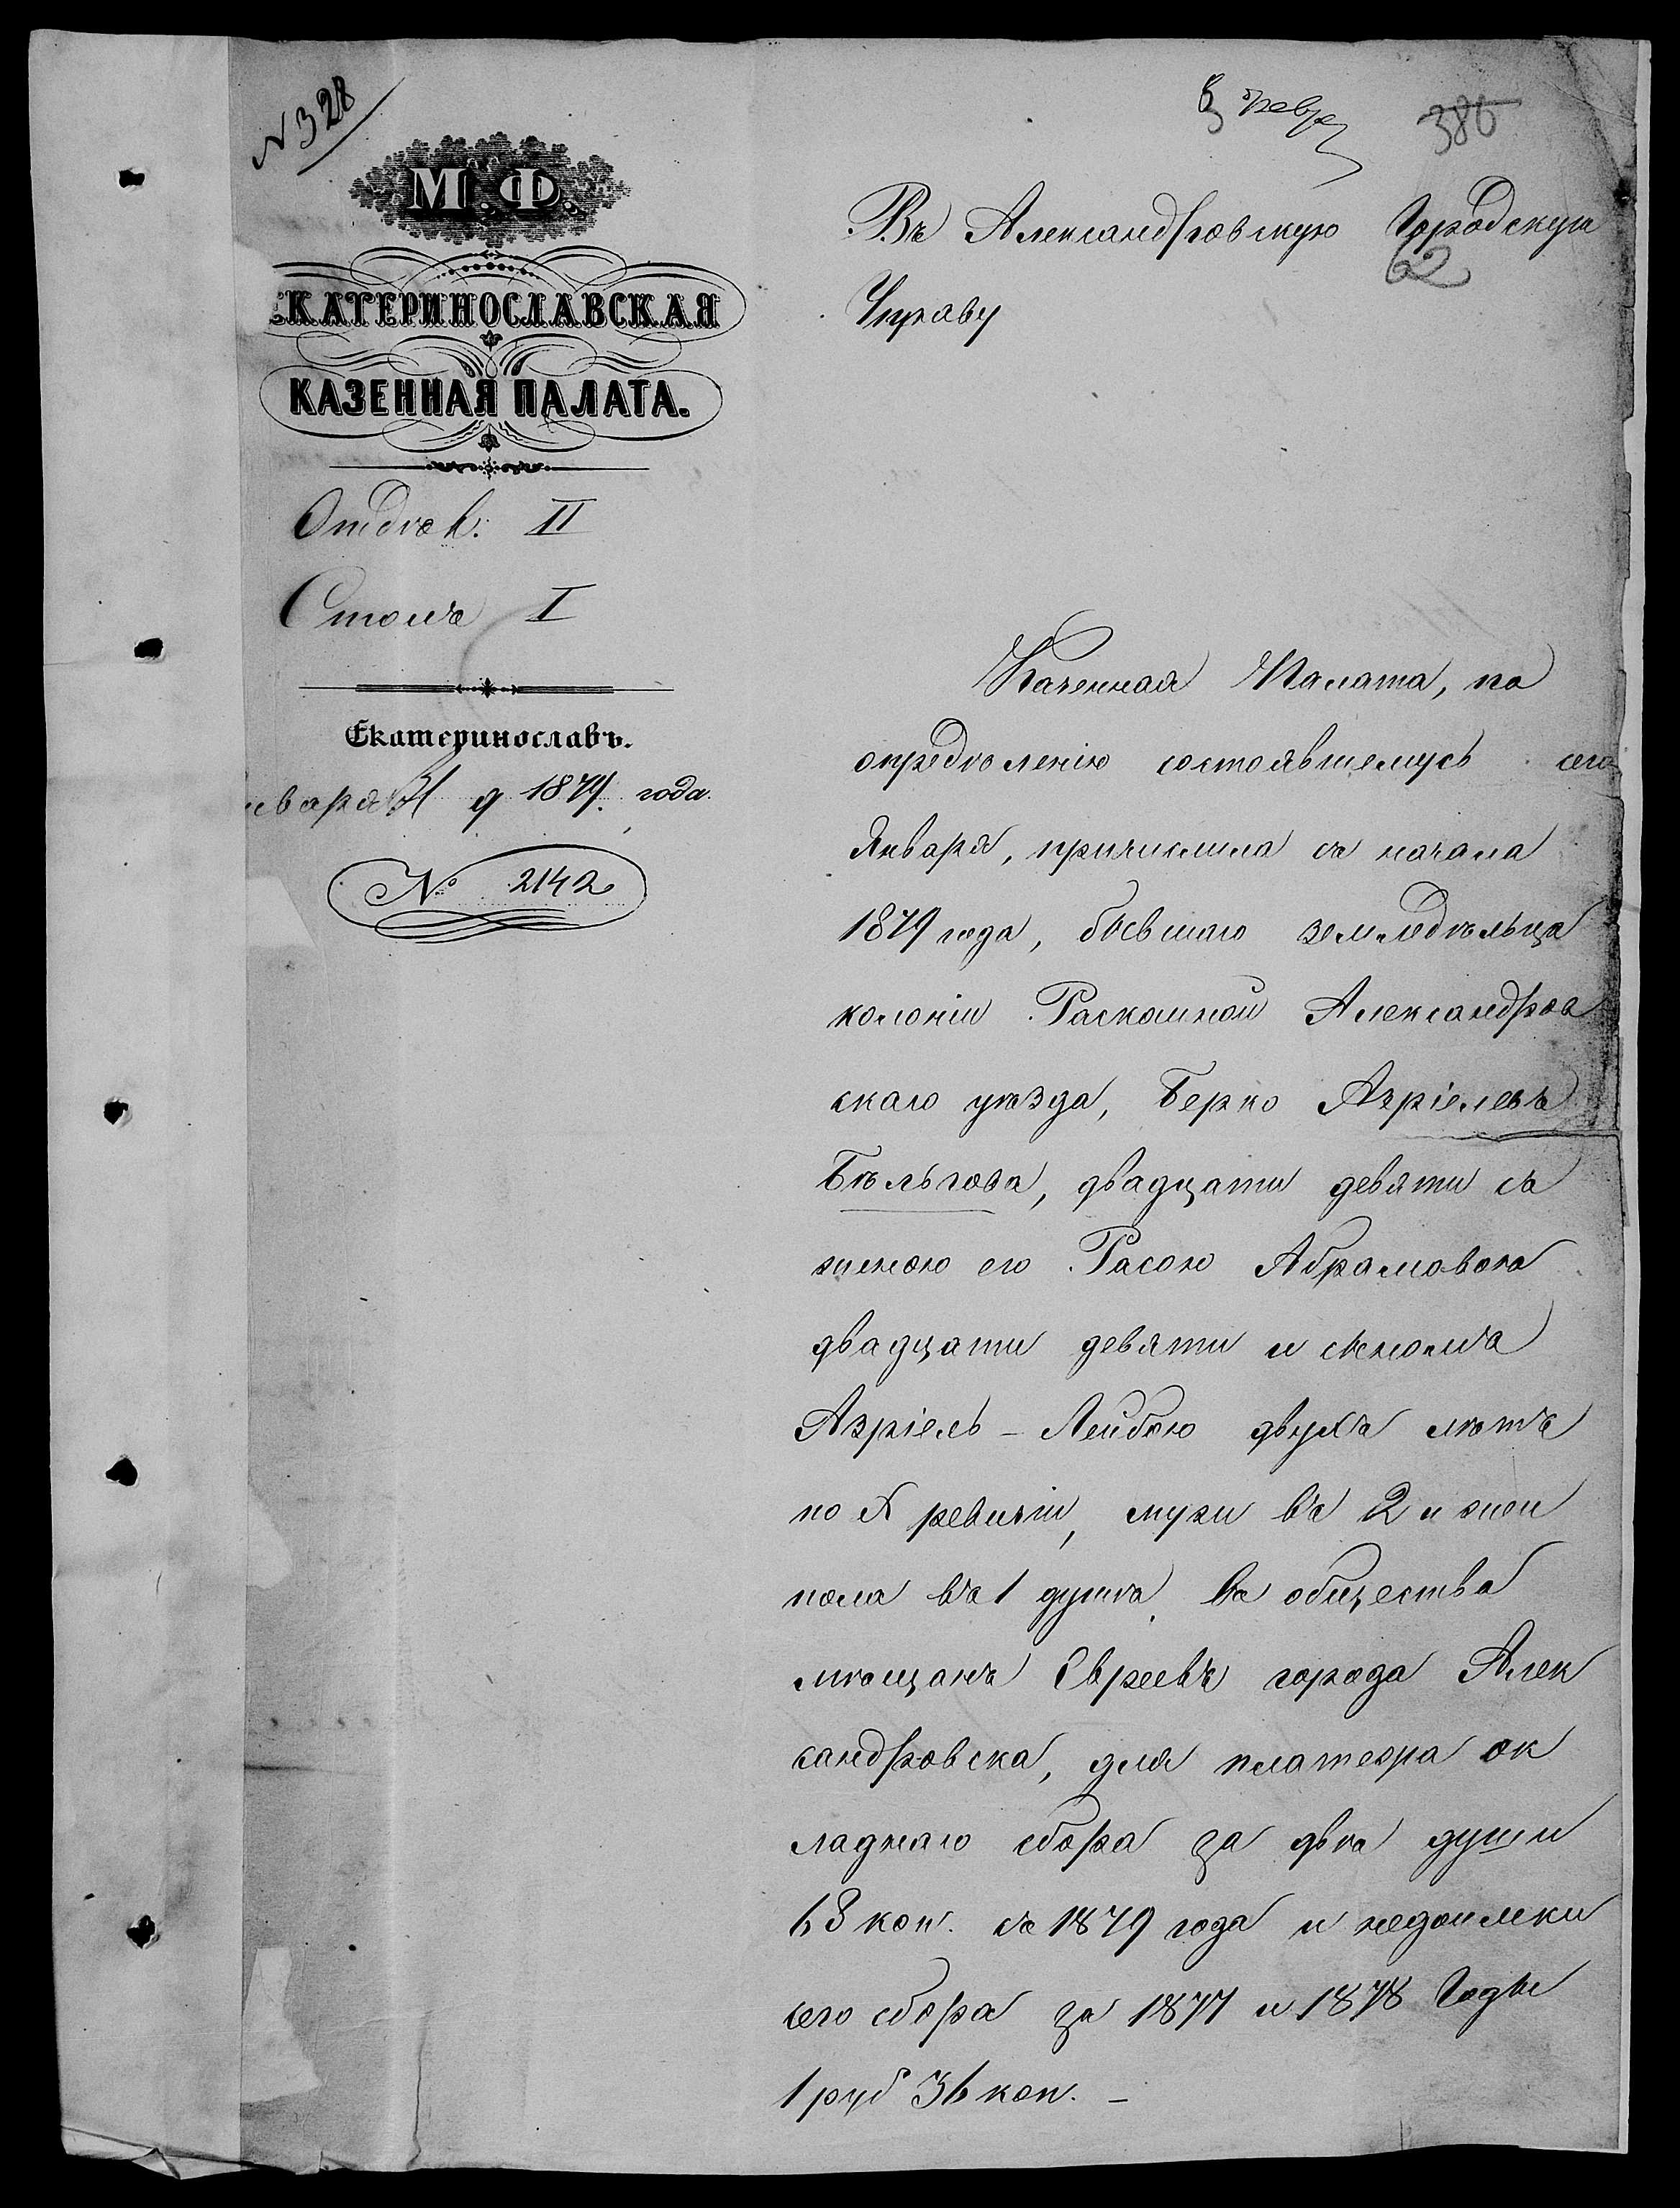 N 328
386
62
М. Ф.
ЕКАТЕРИНОСЛАВСКАЯ
КАЗЕННАЯ ПАЛАТА.
Отдѣл: II
Столъ I
Екатеринославъ.
нваря 31 д 1879. года.
№ 2142
Въ Александровскую Городскую
Управу
Казенная Палата, по
опредѣленію состоявшемуся сего
Января, причислила съ начала
1879 года, бывшаго земледѣльца
колоніи Раскошной Александров
скаго уѣзда, Берко Азріелевъ
Бѣльгова, двадцати девяти съ
женою его Расою Абрамовою
двадцати девяти и сыномъ
Азріель-Лейбою двухъ лѣтъ
по X ревизіи, муж въ 2 и жен
пола въ 1 душѣ, въ общества
мѣщанъ Евреевъ города Алек
сандровска, для платежа ок
ладнаго сбора за двѣ души
68 коп. съ 1879 года и недоимки
сего сбора за 1877 и 1878 Годы
1 руб 36 коп. -